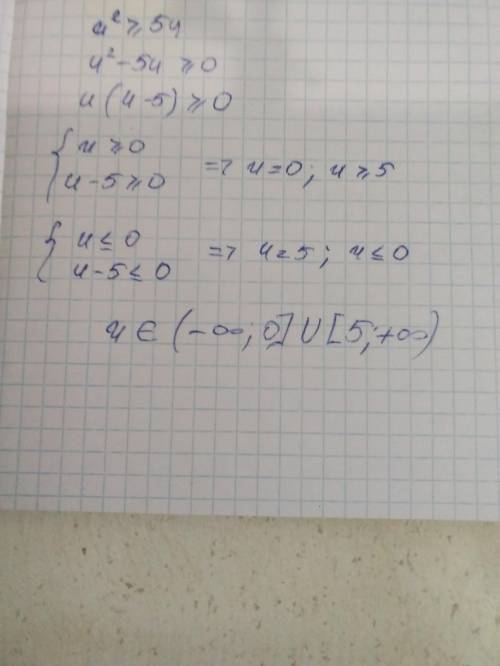 u² ⩾ 5u
u² - 5u ⩾ 0
u(u-5) ⩾ 0
{ u ⩾ 0
u - 5 ⩾ 0 => u = 0; u ⩾ 5
{ u ≤ 0
u - 5 ≤ 0 => u = 5; u ≤ 0
u ∈ (-∞; 0] ∪ [5; +∞)